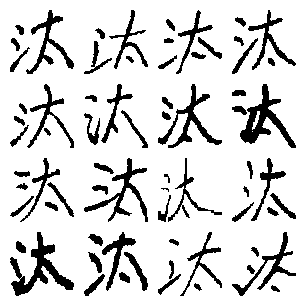 汰汰汰汰
汰汰汰汰
汰汰汰汰
汰汰汰汰